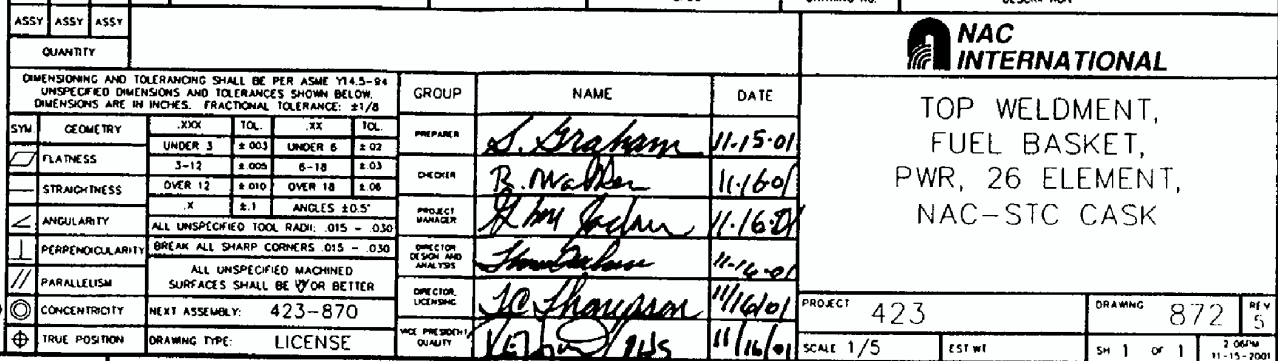 ASSY ASSY ASSY
QUANTITY
DIMENSIONING AND TOLERANCING SHALL BE PER ASME Y14.5-94
UNSPECIFIED DIMENSIONS AND TOLERANCES SHOWN BELOW.
DIMENSIONS ARE IN INCHES. FRACTIONAL TOLERANCE: ±1/8
SYM GEOMETRY .XXX TOL. .XX TOL.
UNDER 3 ±.003 UNDER 6 ±.02
FLATNESS 3-12 ±.005 6-18 ±.03
STRAIGHTNESS OVER 12 ±.010 OVER 18 ±.06
.X ±.1 ANGLES ±0.5°
ANGULARITY ALL UNSPECIFIED TOOL RADII: .015 - .030
PERPENDICULARITY BREAK ALL SHARP CORNERS .015 - .030
PARALLELISM ALL UNSPECIFIED MACHINED
SURFACES SHALL BE OR BETTER
CONCENTRICITY NEXT ASSEMBLY: 423-870
TRUE POSITION DRAWING TYPE: LICENSE
GROUP NAME DATE
PREPARER S. Graham 11-15-01
CHECKER B. 11-16-01
PROJECT MANAGER 11-16-01
DIRECTOR DESIGN AND ANALYSIS
DIRECTOR, LICENSING TC Thompson 11/16/01
VICE PRESIDENT QUALITY 11/16/01
NAC
INTERNATIONAL
TOP WELDMENT,
FUEL BASKET,
PWR, 26 ELEMENT,
NAC-STC CASK
PROJECT 423 DRAWING 872 REV 5
SCALE 1/5 EST WT SH 1 OF 1 2:06PM
11-15-2001